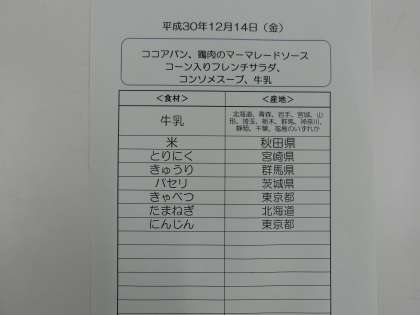 平成30年12月14日（金）
ココアパン、鶏肉のマーマレードソース
コーン入りフレンチサラダ、
コンソメスープ、牛乳
＜食材＞ ＜産地＞
牛乳 北海道、青森、岩手、宮城、山
形、埼玉、栃木、群馬、神奈川、
静岡、千葉、福島のいずれか
米 秋田県
とりにく 宮崎県
きゅうり 群馬県
パセリ 茨城県
きゃべつ 東京都
たまねぎ 北海道
にんじん 東京都